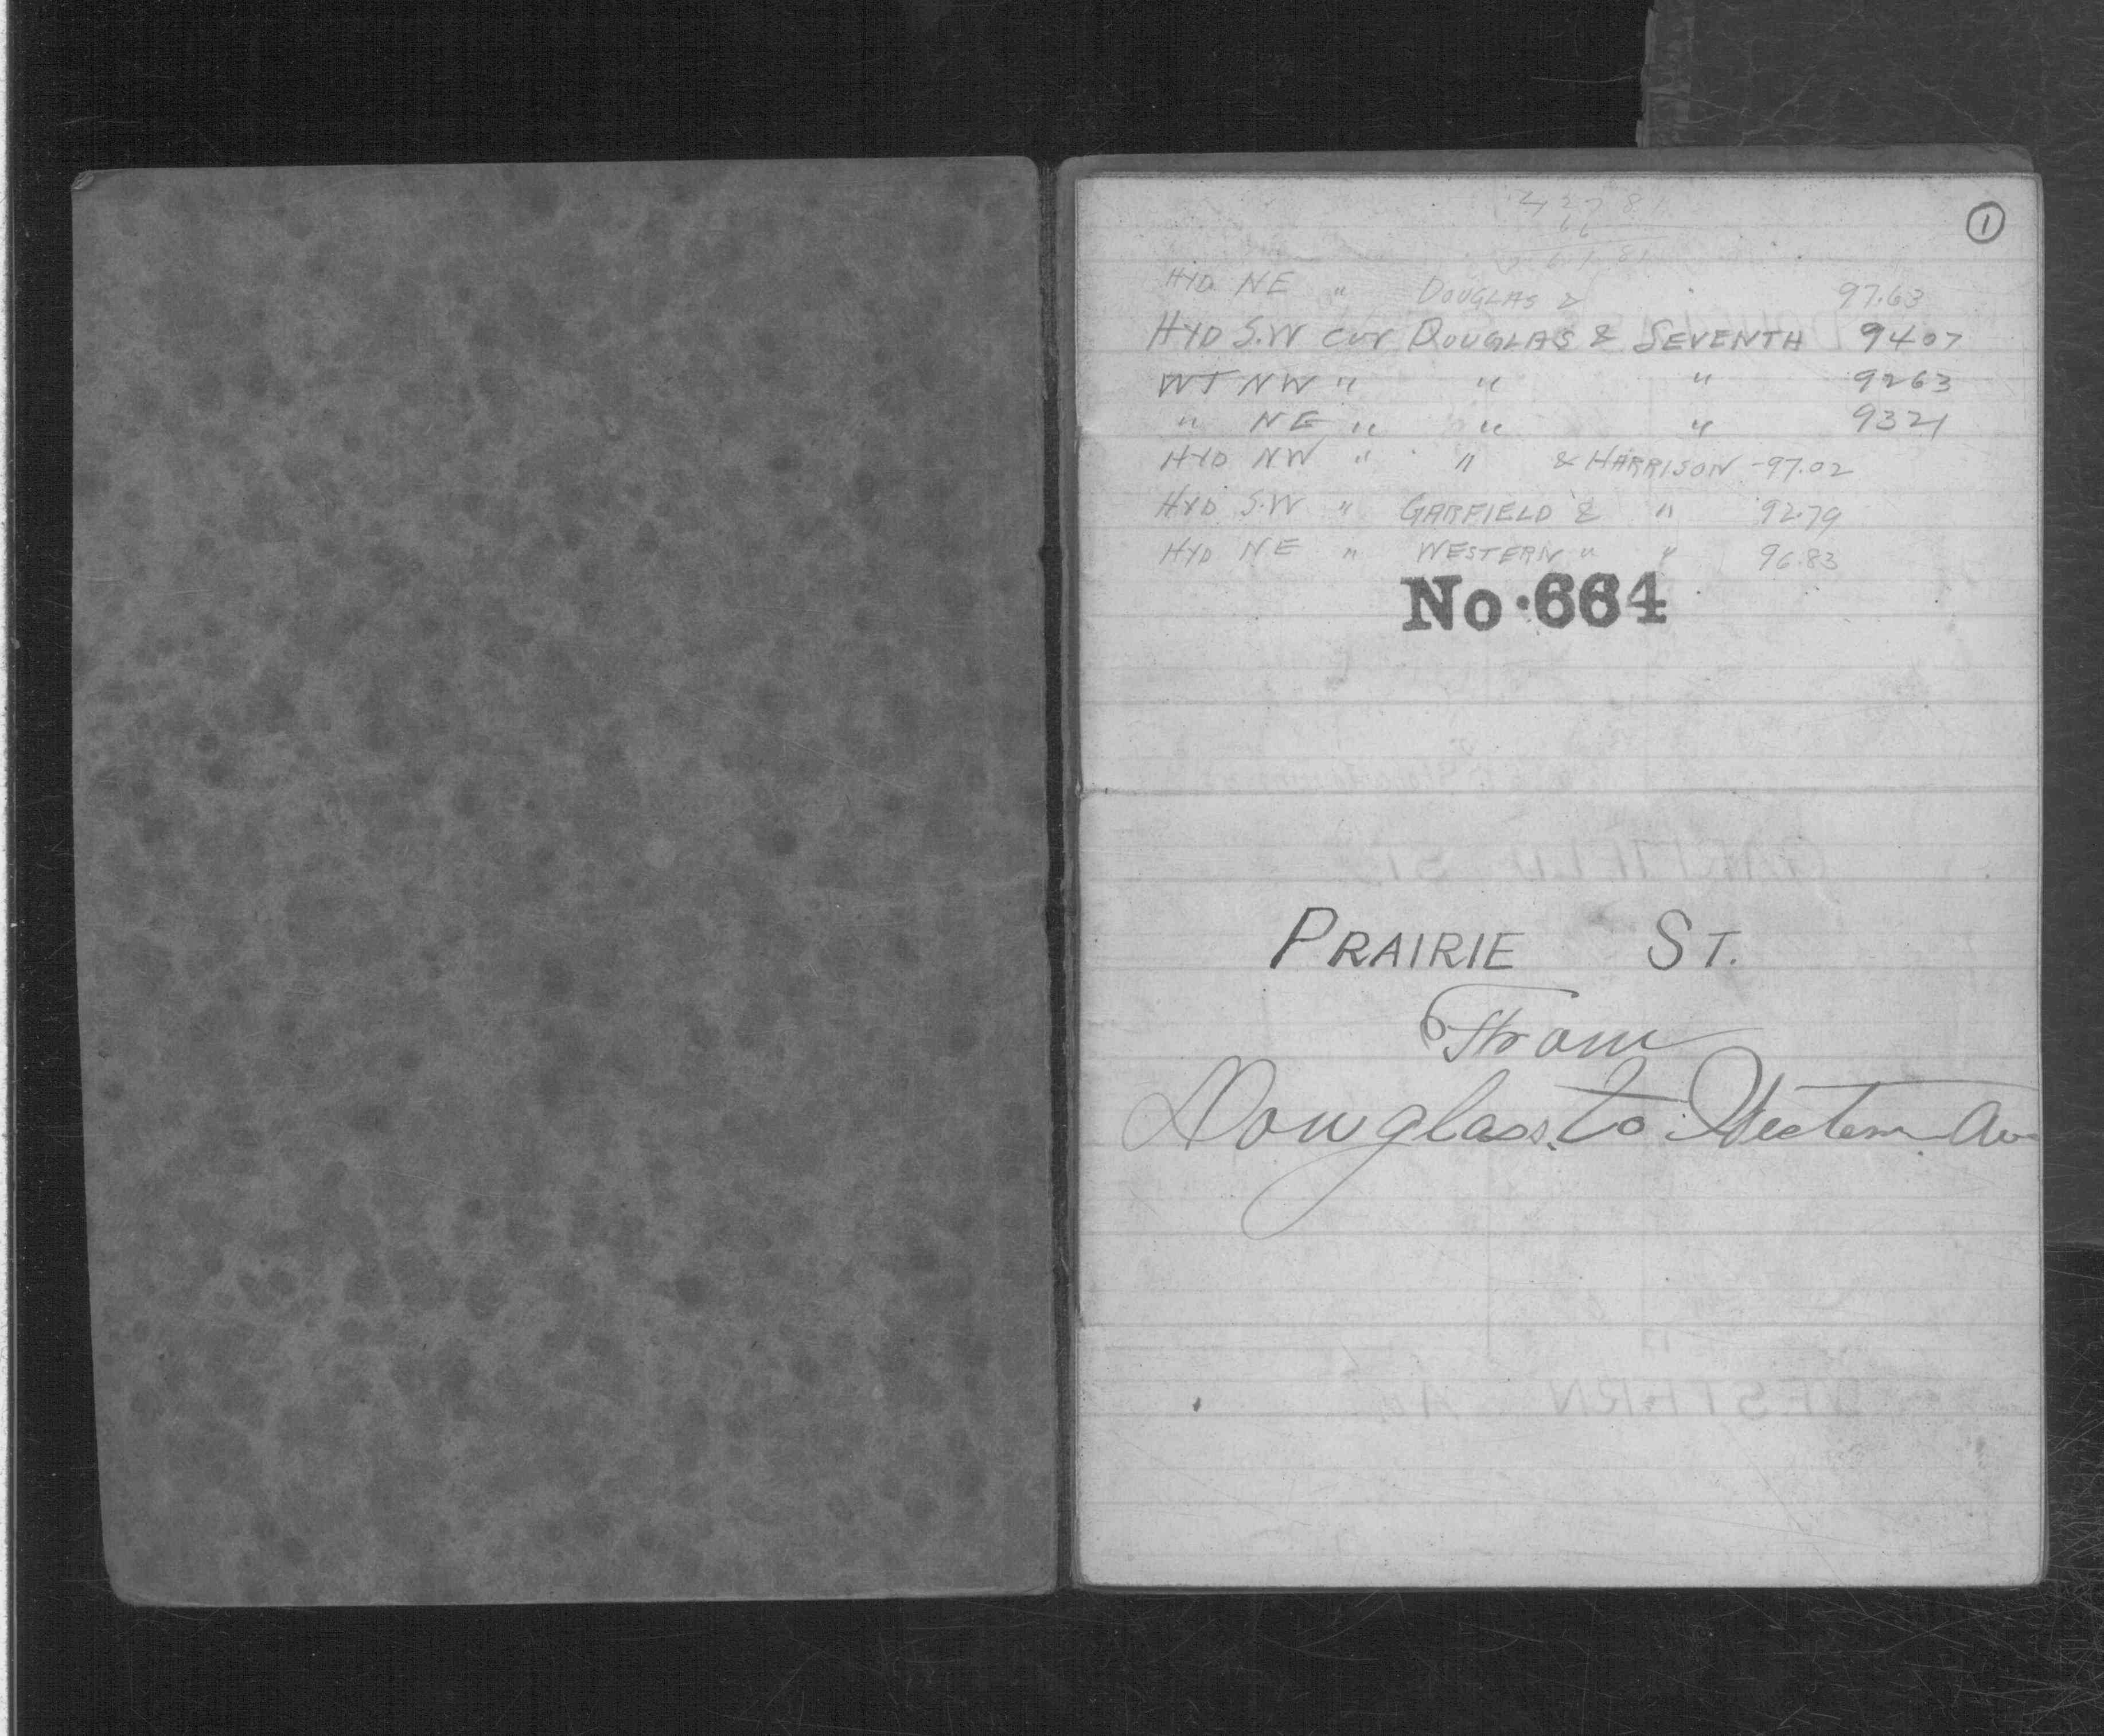 ①
HYD. NE " DOUGLAS & " 97.63
HYD S.W cor DOUGLAS & SEVENTH 9407
WT NW " " " 9263
" NE " " " 9321
HYD NW " " & HARRISON - 97.02
HYD S.W " GARFIELD & " 92.79
HYD NE " WESTERN " " 96.83
No. 664
PRAIRIE ST.
From
Douglass to Western Av